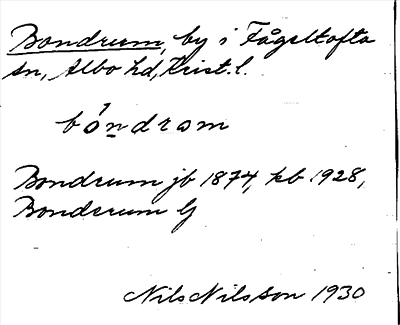 Bondrum, by i Fågeltofta
sn, Albo hd, Krist. l.
bón̲drom
Bondrum jb 1874, kb 1928,
Bonderum
Nils Nilsson 1930